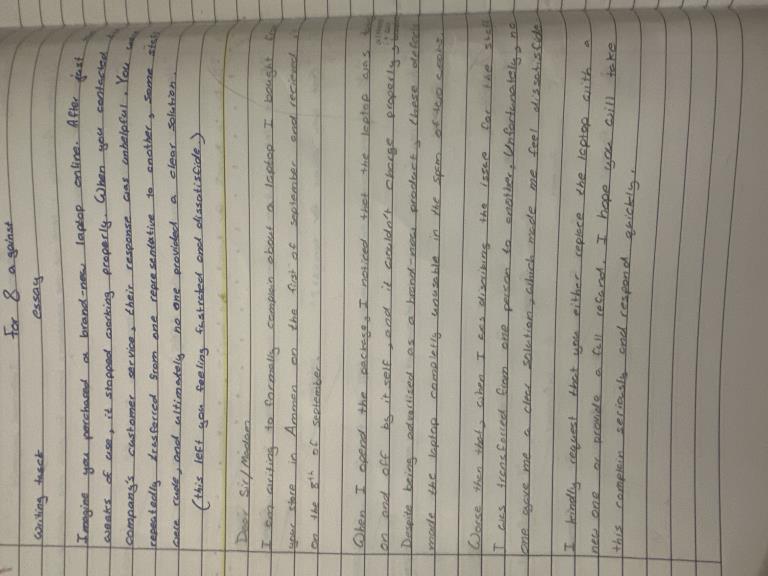 For & against
writing task essay
Imagine you purchased a brand-new laptop online. After just
weeks of use, it stopped working properly. When you contacted
company's customer service, their response was unhelpful. You
repeatedly trasferred from one representative to another, some
were rude, and ultimately no one provided a clear solution.
(this left you feeling fustrated and dissatisfide.)
Dear Sir/Madaen
I am writing to formally complain about a laptop I bought
your store in Ammen on the first of september and recieved
on the 8th of september.
When I opend the package, I noticed that the laptop
on and off by it self, and it wouldn't charge properly,
Despite being advertised as a brand-new product, these defects
made the laptop completly unusable in the spem of two weeks.
Worce then that, when I was discribing the issue for the
I was transfurred from one person to another, Unfortunately, no
one gave me a clear solution, which made me feel dissatisfide
I kindly request that you either replace the laptop with a
new one or provide a full refund. I hope you will take
this complein seriously and respond quickly.